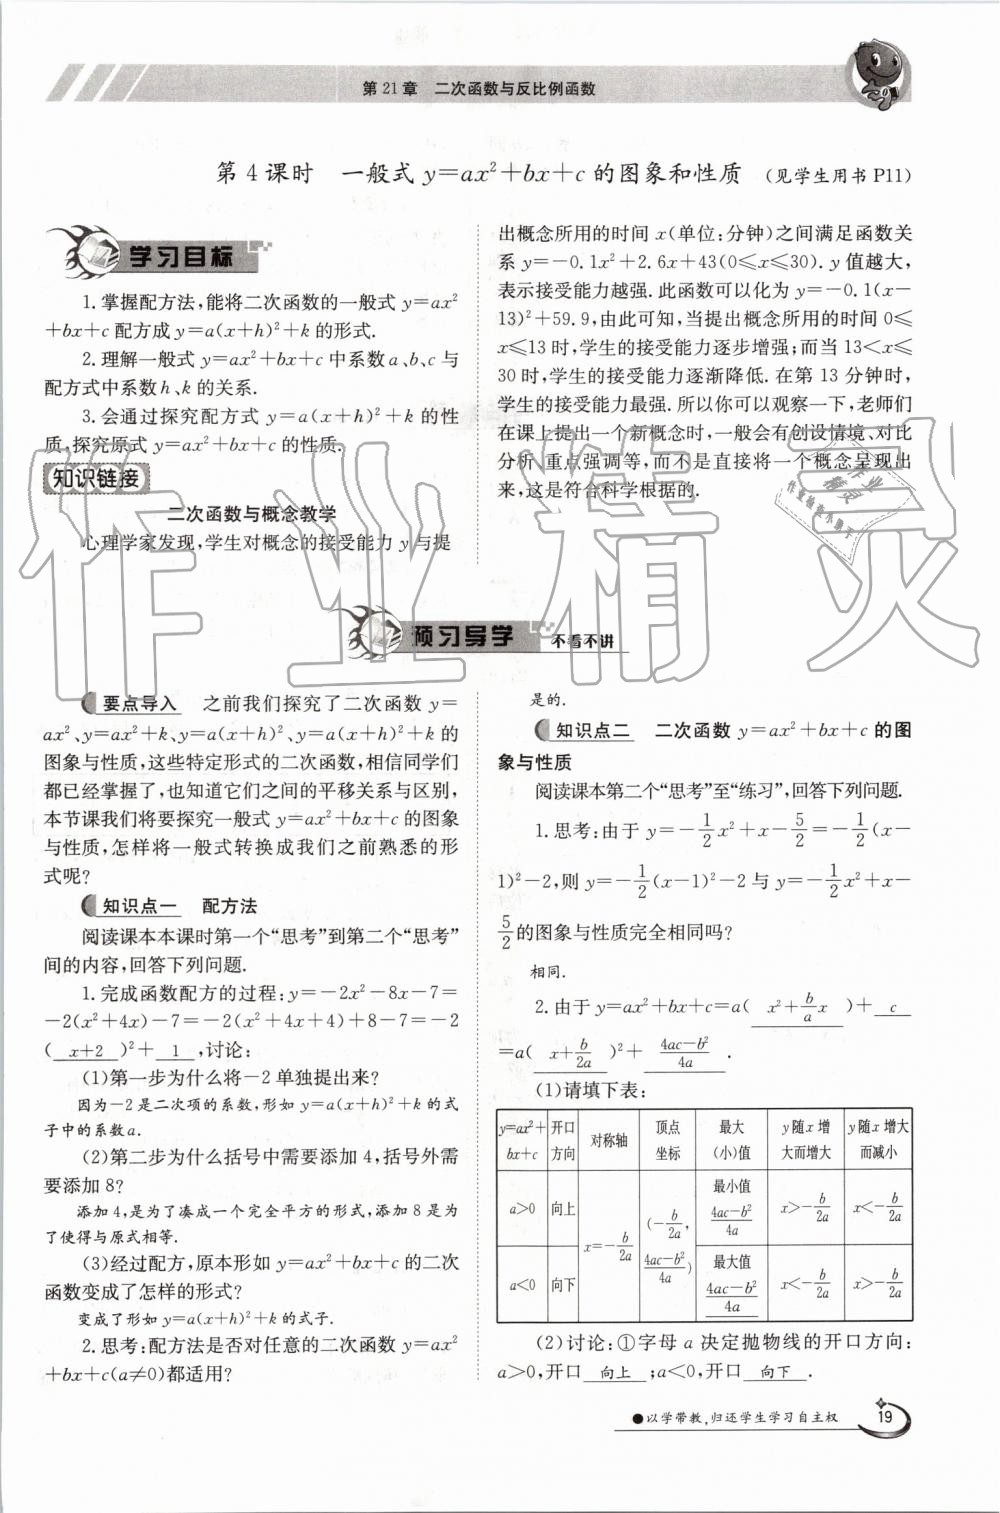 第21章 二次函数与反比例函数
第4课时 一般式y=ax²+bx+c的图象和性质 (见学生用书P11)
学习目标
1.掌握配方法,能将二次函数的一般式y=ax²
+bx+c配方成y=a(x+h)²+k的形式.
2.理解一般式y=ax²+bx+c中系数a、b、c与
配方式中系数h、k的关系.
3.会通过探究配方式y=a(x+h)²+k的性
质,探究原式y=ax²+bx+c的性质.
知识链接
二次函数与概念教学
心理学家发现,学生对概念的接受能力y与提
出概念所用的时间x(单位:分钟)之间满足函数关
系y=-0.1x²+2.6x+43(0≤x≤30).y值越大,
表示接受能力越强.此函数可以化为y=-0.1(x-
13)²+59.9,由此可知,当提出概念所用的时间0≤
x≤13时,学生的接受能力逐步增强;而当13<x≤
30时,学生的接受能力逐渐降低.在第13分钟时,
学生的接受能力最强.所以你可以观察一下,老师们
在课上提出一个新概念时,一般会有创设情境、对比
分析、重点强调等,而不是直接将一个概念呈现出
来,这是符合科学根据的.
预习导学 不看不讲
要点导入 之前我们探究了二次函数y=
ax²、y=ax²+k、y=a(x+h)²、y=a(x+h)²+k的
图象与性质,这些特定形式的二次函数,相信同学们
都已经掌握了,也知道它们之间的平移关系与区别,
本节课我们将要探究一般式y=ax²+bx+c的图象
与性质,怎样将一般式转换成我们之前熟悉的形
式呢?
知识点一 配方法
阅读课本本课时第一个“思考”到第二个“思考”
间的内容,回答下列问题.
1.完成函数配方的过程:y=-2x²-8x-7=
-2(x²+4x)-7=-2(x²+4x+4)+8-7=-2
( x+2 )²+ 1 ,讨论:
(1)第一步为什么将-2单独提出来?
因为-2是二次项的系数,形如y=a(x+h)²+k的式
子中的系数a.
(2)第二步为什么括号中需要添加4,括号外需
要添加8?
添加4,是为了凑成一个完全平方的形式,添加8是为
了使得与原式相等.
(3)经过配方,原本形如y=ax²+bx+c的二次
函数变成了怎样的形式?
变成了形如y=a(x+h)²+k的式子.
2.思考:配方法是否对任意的二次函数y=ax²
+bx+c(a≠0)都适用?
是的.
知识点二 二次函数y=ax²+bx+c的图
象与性质
阅读课本第二个“思考”至“练习”,回答下列问题.
1.思考:由于y=-1/2x²+x-5/2=-1/2(x-
1)²-2,则y=-1/2(x-1)²-2与y=-1/2x²+x-
5/2的图象与性质完全相同吗?
相同.
2.由于y=ax²+bx+c=a( x²+b/a x )+ c
=a( x+b/2a )²+ 4ac-b²/4a .
(1)请填下表:
y=ax²+bx+c 开口方向 对称轴 顶点坐标 最大(小)值 y随x增大而增大 y随x增大而减小
a>0 向上 x=-b/2a (-b/2a, 4ac-b²/4a) 最小值 4ac-b²/4a x>-b/2a x<-b/2a
a<0 向下 最大值 4ac-b²/4a x<-b/2a x>-b/2a
(2)讨论:①字母a决定抛物线的开口方向:
a>0,开口 向上 ;a<0,开口 向下 .
●以学带教,归还学生学习自主权 19
作业精灵